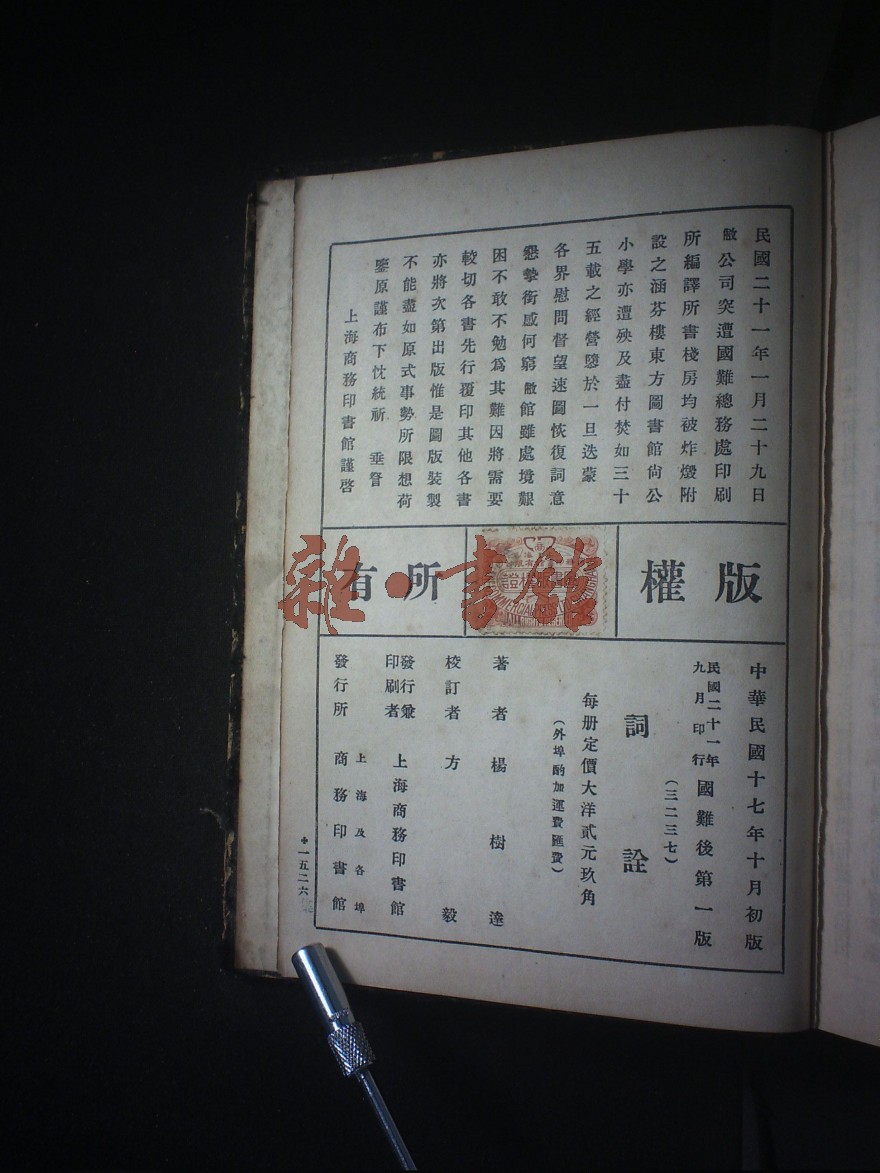 民國二十一年一月二十九日
敝公司突遭國難總務處印刷
所編譯所書棧房均被炸燬附
設之涵芬樓東方圖書館尙公
小學亦遭殃及盡付焚如三十
五載之經營隳於一旦迭蒙
各界慰問督望速圖恢復詞意
懇摯銜感何窮敝館雖處境艱
困不敢不勉爲其難因將需要
較切各書先行覆印其他各書
亦將次第出版惟是圖版裝製
不能盡如原式事勢所限想荷
鑒原謹布下忱統祈 垂詧
上海商務印書館謹啓
版權
所有
雜·書館
中華民國十七年十月初版
民國二十一年九月印行 國難後第一版
(三二三七)
詞詮
每册定價大洋貳元玖角
(外埠酌加運費匯費)
著者 楊樹達
校訂者 方毅
發行兼印刷者 上海商務印書館
發行所 上海及各埠 商務印書館
一五二六